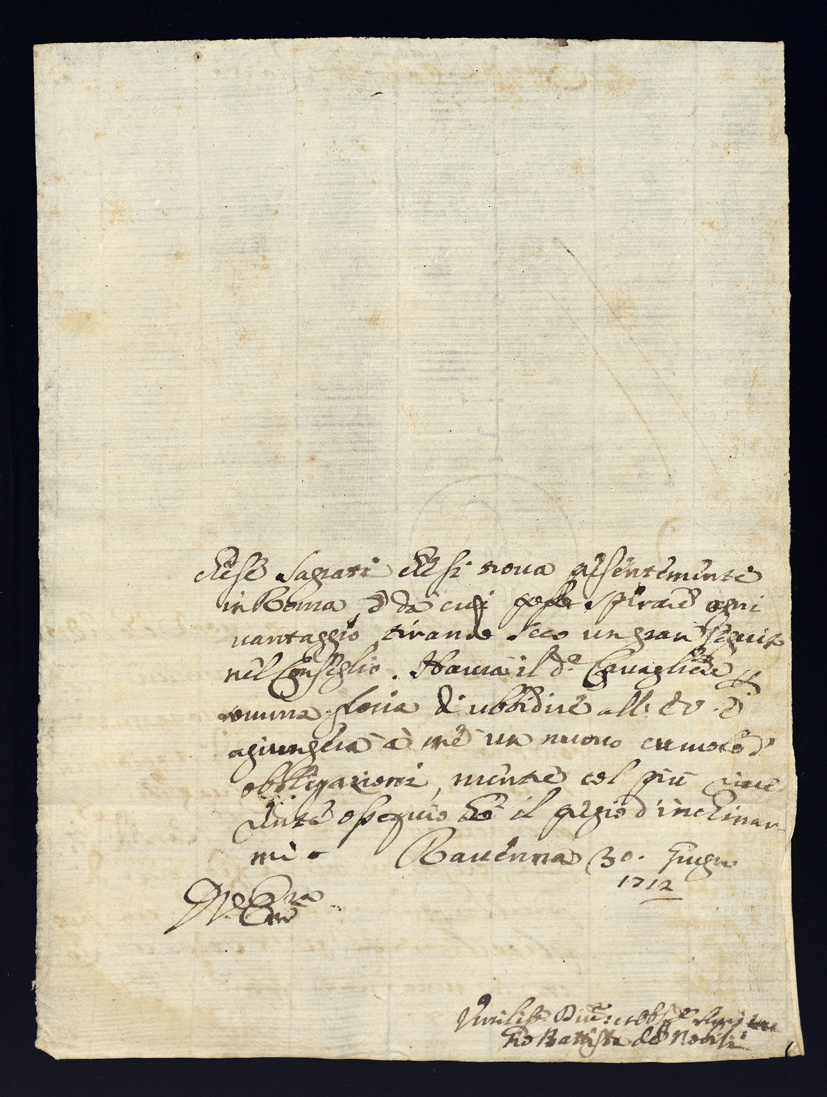 chese Sagrati che si trova presentemente
in Roma, e da cui posso sperare ogni
vantaggio, tirando seco un gran seguito
nel Consiglio. Haurà il do Cavagliere
somma gloria di ubbidire all' E.V. e
agiungerà à me un nuovo cumolo d'
obbligazioni, mentre col più rive
rente ossequio hò il pregio d'inchinar
mi Ravenna 30. Giugno
1712
Di V. Emza
Umiliss Divot et obb
Gio Battista de Nobili